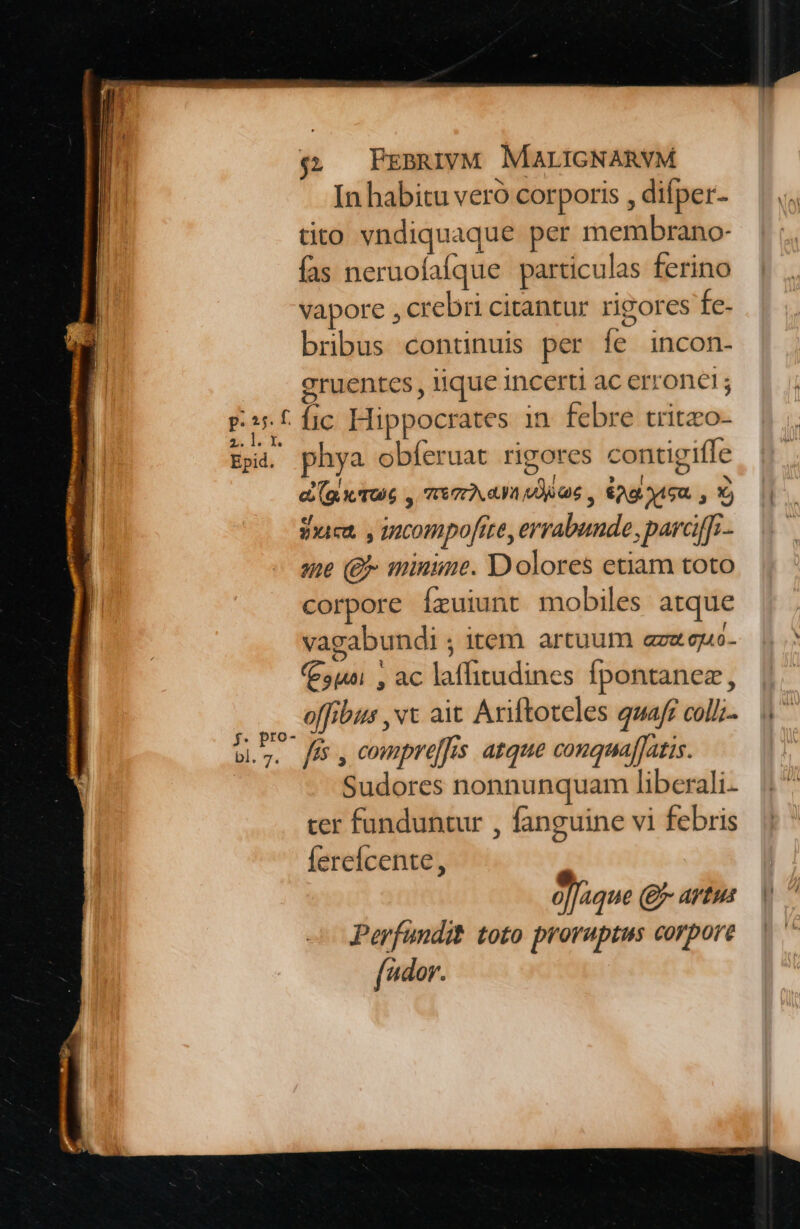 52 FEBRIVM MALIGNARVM
In habitu verò corporis , diſper-
tito vndiquaque per membrano-
ſas neruoſaſque particulas ferino
vapore , crebri citantur rigores fe-
bribus continuis per ſe incon-
gruentes , iique incerti ac erronei ;
p. 25. f. ſic Hippocrates in febre tritæo-
2. l. 1.
Epid. phya obſeruat rigores contigiſſe
ἀτάκτως , πεπλανημένως , ἐλάχιστα , καὶ
ἥκιστα , incompoſite, errabunde, parciſſi-
me & minime. Dolores etiam toto
corpore ſæuiunt mobiles atque
vagabundi ; item artuum
, ac laſſitudines ſpontaneæ ,
oſſibus , vt ait Ariſtoteles quaſi colli-
5. pro-
bl. 7. ſis , compreſſis atque conquaſſatis.
Sudores nonnunquam liberali-
ter funduntur , ſanguine vi febris
ſereſcente ,
oſſaque & artus
Perfundit toto proruptus corpore
ſudor.